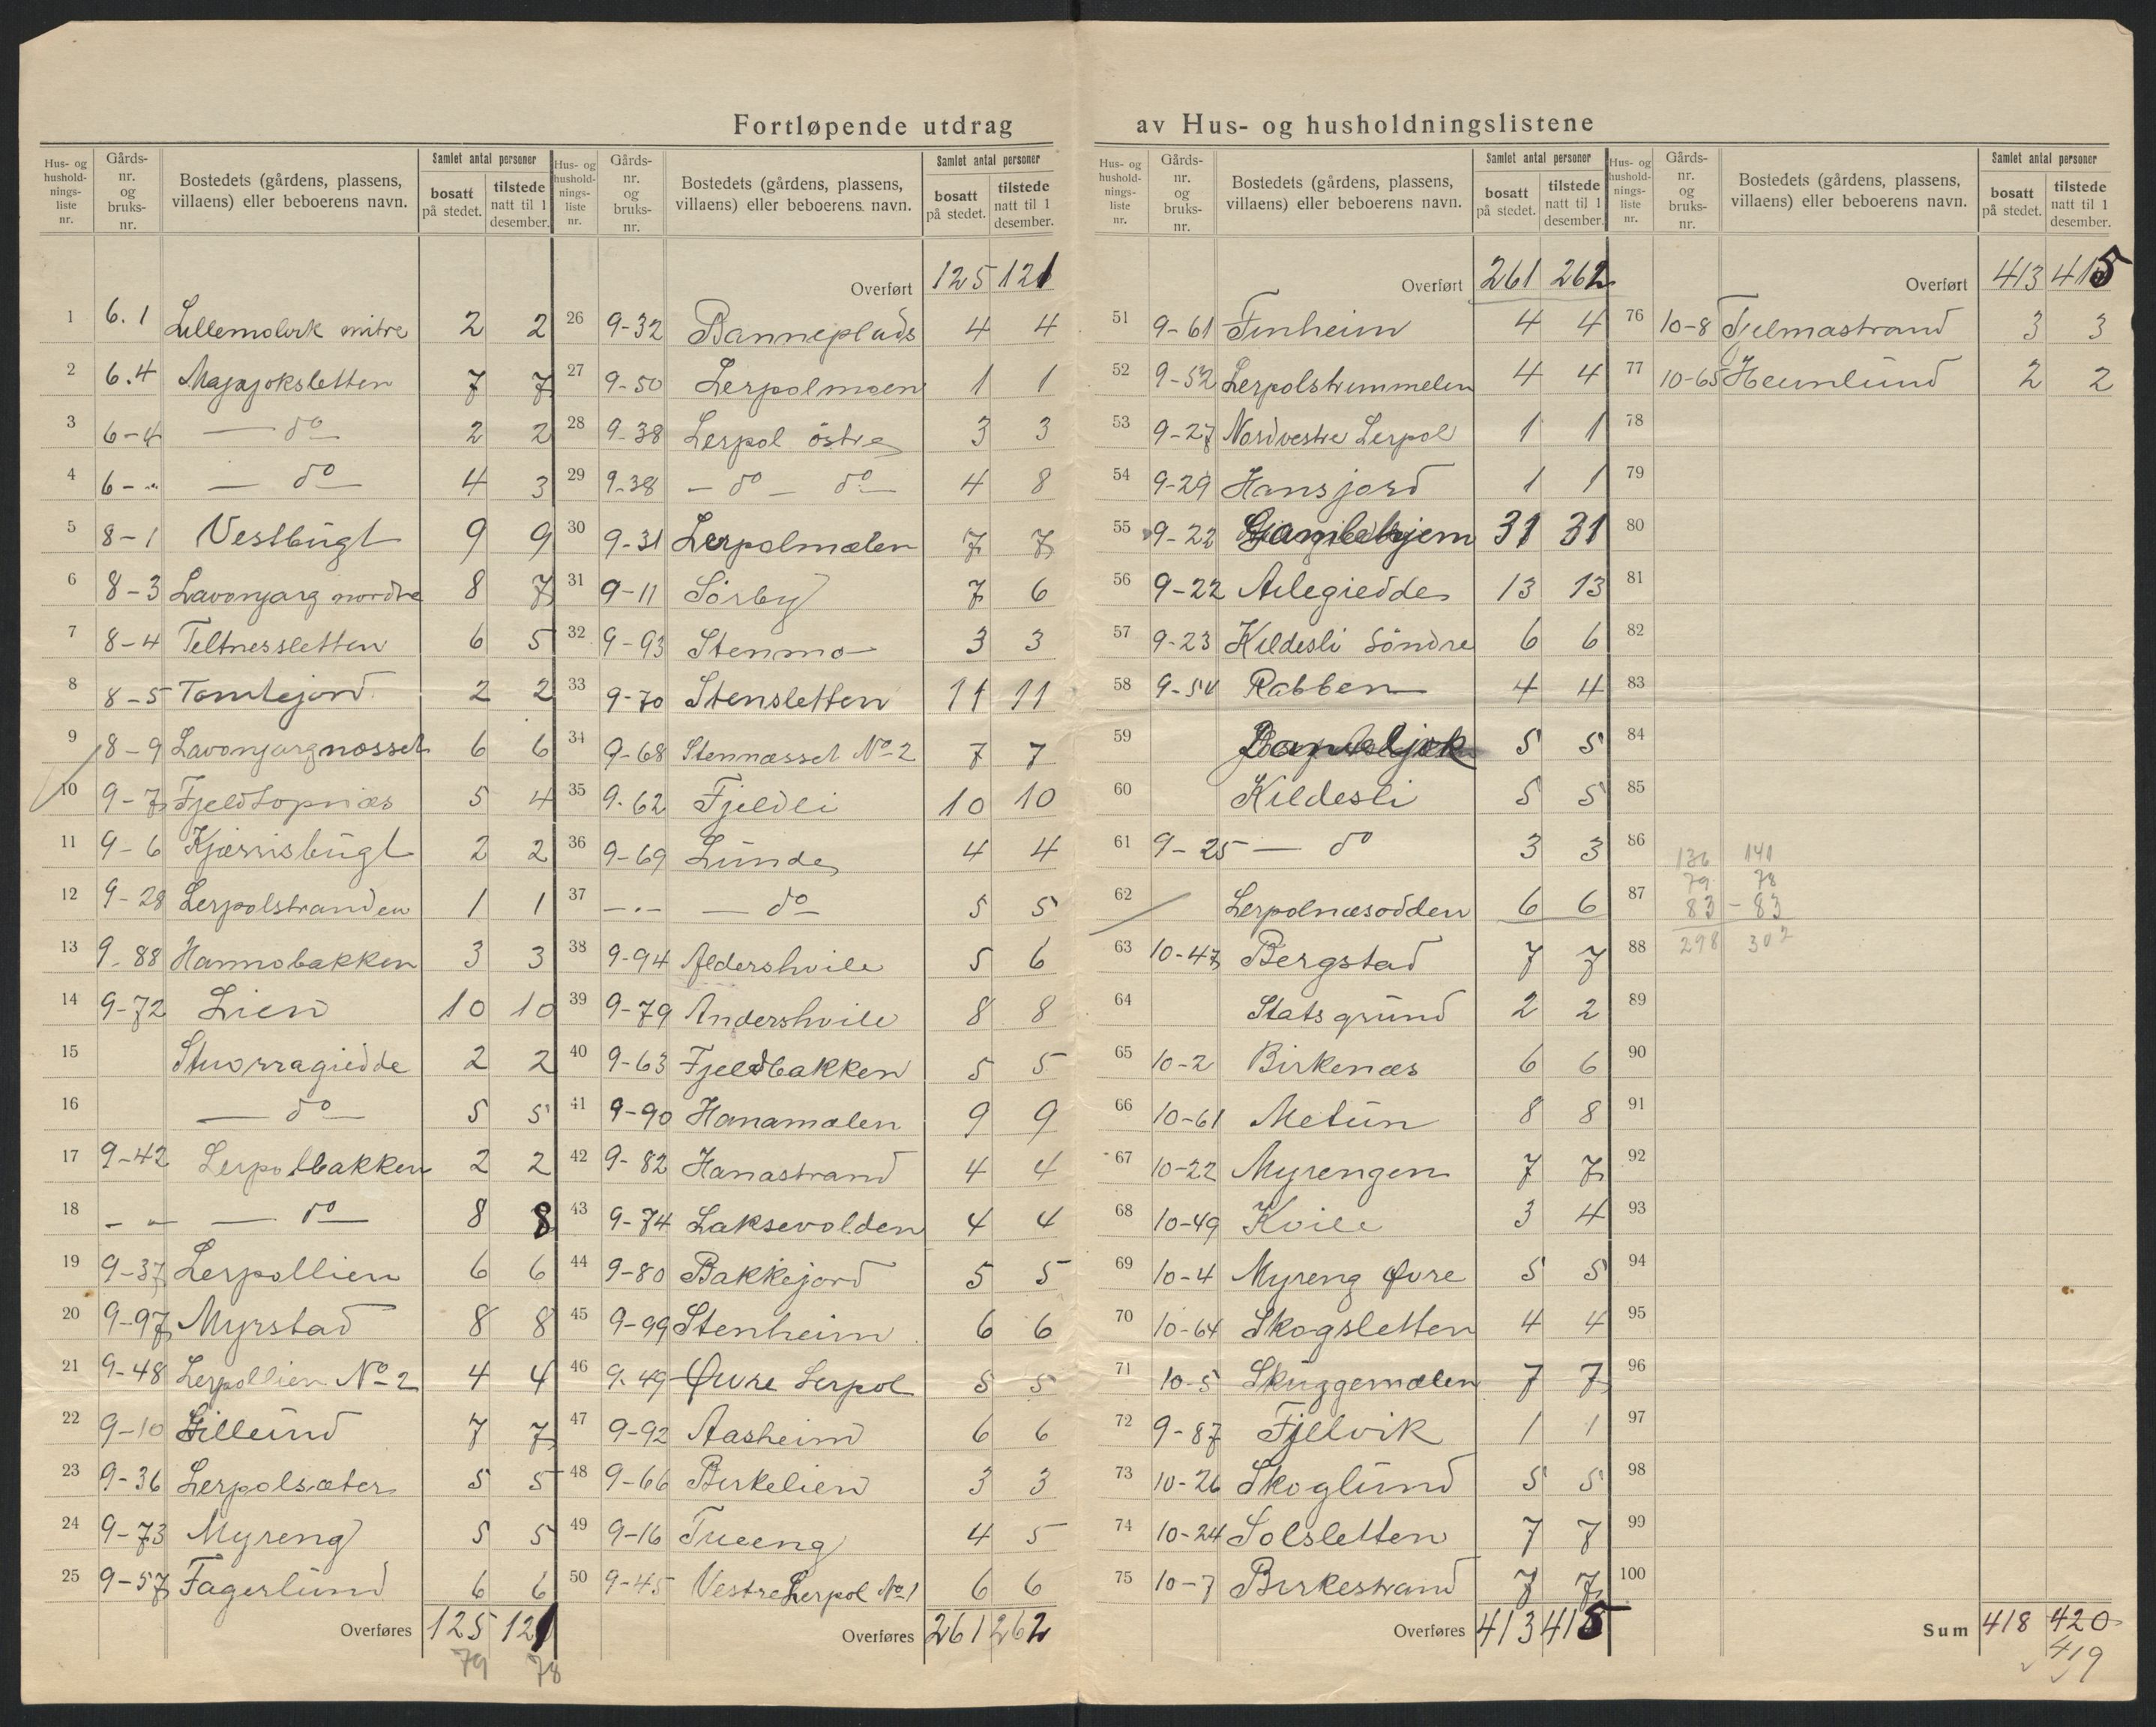 Fortløpende utdrag av Hus- og husholdningslistene
Hus- og husholdningsliste nr. | Gårdsnr. og bruksnr. | Bostedets (gårdens, plassens, villaens) eller beboerens navn. | Samlet antal personer bosatt på stedet. | tilstede natt til 1 desember.
1 6.1 Lillemolvik mitre 2 2
2 6.4 Majajoksletten 7 7
3 6-4 — do — 2 2
4 6-" — do — 4 3
5 8-1 Vestbugt 9 9
6 8-3 Lavonjarg nordre 8 7
7 8-4 Teltnessletten 6 5
8 8-5 Tomtejord 2 2
9 8-9 Lavonjargnosset 6 6
10 9-7 Fjeldtopnæs 5 4
11 9-6 Kjærrisbugt 2 2
12 9-28 Lerpolstranden 1 1
13 9-88 Hannobakken 3 3
14 9-72 Lien 10 10
15 Stuorragiedde 2 2
16 — do — 5 5
17 9-42 Lerpolbakken 2 2
18 - - — do — 8 8
19 9-37 Lerpollien 6 6
20 9-97 Myrstad 8 8
21 9-48 Lerpollien No 2 4 4
22 9-10 Lillelund 7 7
23 9-36 Lerpolsæter 5 5
24 9-73 Myreng 5 5
25 9-57 Fagerlund 6 6
Overføres 125 121
79 78
Hus- og husholdningsliste nr. | Gårdsnr. og bruksnr. | Bostedets (gårdens, plassens, villaens) eller beboerens navn. | Samlet antal personer bosatt på stedet. | tilstede natt til 1 desember.
Overført 125 121
26 9-32 Banneplads 4 4
27 9-50 Lerpolmoen 1 1
28 9-38 Lerpol östre 3 3
29 9-38 - do - do - 4 8
30 9-31 Lerpolmælen 7 7
31 9-11 Sörby 7 6
32 9-93 Stenmo 3 3
33 9-70 Stensletten 11 11
34 9-68 Stennæsset No 2 7 7
35 9-62 Fjeldli 10 10
36 9-69 Lunde 4 4
37 -"- — do — 5 5
38 9-94 Aldershvile 5 6
39 9-79 Andershvile 8 8
40 9-63 Fjeldbakken 5 5
41 9-90 Hanamælen 9 9
42 9-82 Hanastrand 4 4
43 9-74 Laksevolden 4 4
44 9-80 Bakkejord 5 5
45 9-99 Stenheim 6 6
46 9-49 Øvre Lerpol 5 5
47 9-92 Aasheim 6 6
48 9-66 Birkelien 3 3
49 9-16 Tueeng 4 5
50 9-45 Vestre Lerpol No 1 6 6
Overføres 261 262
Hus- og husholdningsliste nr. | Gårdsnr. og bruksnr. | Bostedets (gårdens, plassens, villaens) eller beboerens navn. | Samlet antal personer bosatt på stedet. | tilstede natt til 1 desember.
Overført 261 262
51 9-61 Finheim 4 4
52 9-52 Lerpolstrimmelen 4 4
53 9-27 Nordvestre Lerpol 1 1
54 9-29 Hansjord 1 1
55 9-22 Gamlehjem 31 31
56 9-22 Ailegiedde 13 13
57 9-23 Kildesli Söndre 6 6
58 9-54 Rabben 4 4
59 5 5
60 Kildesli 5 5
61 9-25 — do 3 3
62 Lerpolnæsodden 6 6
63 10-47 Bergstad 7 7
64 Statsgrund 2 2
65 10-2 Birkenæs 6 6
66 10-61 Metun 8 8
67 10-22 Myrengen 7 7
68 10-49 Kvile 3 4
69 10-4 Myreng Øvre 5 5
70 10-64 Skogsletten 4 4
71 10-5 Skuggemælen 7 7
72 9-87 Fjelvik 1 1
73 10-26 Skoglund 5 5
74 10-24 Solsletten 7 7
75 10-7 Birkestrand 7 7
Overføres 413 415
Hus- og husholdningsliste nr. | Gårdsnr. og bruksnr. | Bostedets (gårdens, plassens, villaens) eller beboerens navn. | Samlet antal personer bosatt på stedet. | tilstede natt til 1 desember.
Overført 413 415
76 10-8 Fjelmastrand 3 3
77 10-65 Heimlund 2 2
78
79
80
81
82
83
84
85
86 136 141
79 78
87 83 - 83
88 298 302
89
90
91
92
93
94
95
96
97
98
99
100
Sum 418 420
419